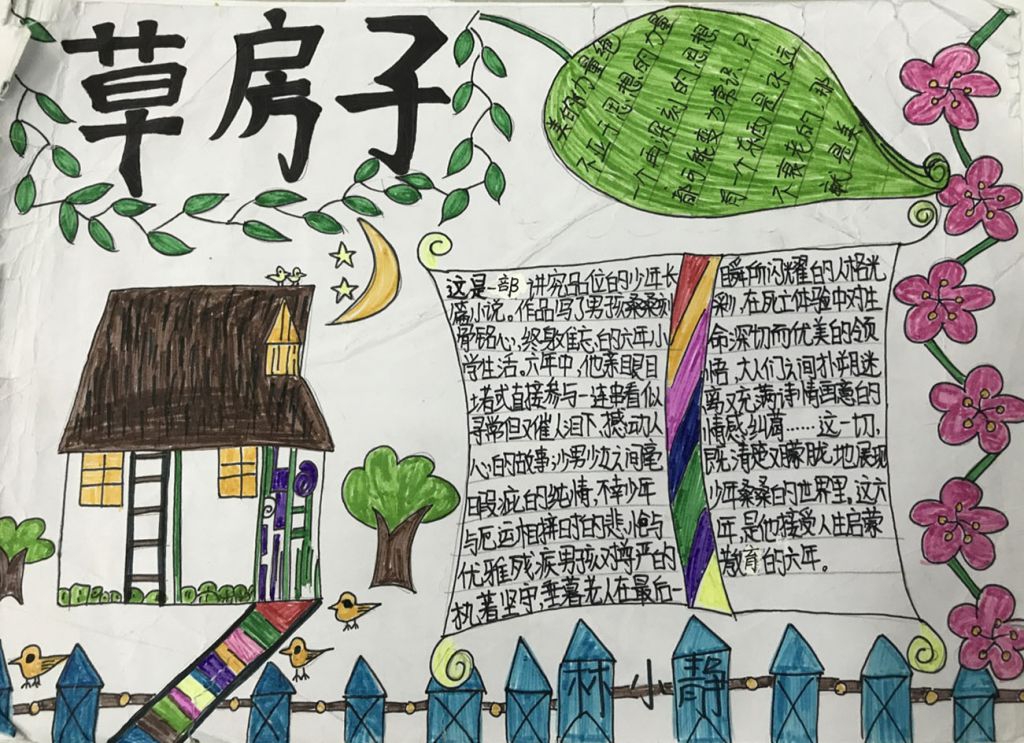 草房子
美的力量绝
不亚于思想的力量
一个再深刻的思想
都可能变为常识，
只有一个东西是永远
不衰老的，那
就是美
这是一部讲究品位的少年长
篇小说。作品写了男孩桑桑刻
骨铭心，终身难忘的六年小
学生活。六年中，他亲眼目
睹或直接参与一连串看似
寻常但又催人泪下、撼动人
心的故事；少男少女之间毫
无瑕疵的纯情，不幸少年
与厄运相拼时的悲怆与
优雅，残疾男孩对尊严的
执着坚守，垂暮老人在最后一
瞬所闪耀的人格光
彩，在死亡体验中对生
命深切而优美的领
悟，大人们之间扑朔迷
离又充满诗情画意的
情感纠葛……这一切，
既清楚又朦胧地展现
少年桑桑的世界里。这六
年，是他接受人生启蒙
教育的六年。
林小静